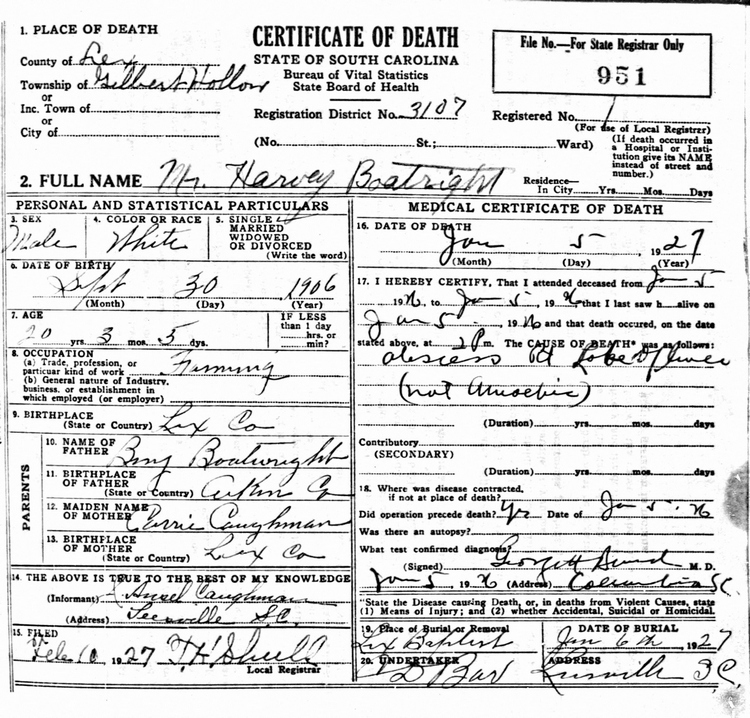 1. PLACE OF DEATH
County of Lex
Township of Gilbert Hollow
or
Inc. Town of
or
City of
CERTIFICATE OF DEATH
STATE OF SOUTH CAROLINA
Bureau of Vital Statistics
State Board of Health
Registration District No. 3107
(No. St.; Ward)
File No.—For State Registrar Only
951
Registered No. 1
(For use of Local Registrar)
(If death occurred in a Hospital or Institution give its NAME instead of street and number.)
2. FULL NAME Mr. Harvey Boatright
Residence—
In City Yrs. Mos. Days
PERSONAL AND STATISTICAL PARTICULARS
3. SEX
Male
4. COLOR OR RACE
White
5. SINGLE
MARRIED
WIDOWED
OR DIVORCED
(Write the word)
6. DATE OF BIRTH
Sept 30 1906
(Month) (Day) (Year)
7. AGE
20 yrs. 3 mos. 5 dys.
IF LESS
than 1 day
hrs. or
min?
8. OCCUPATION
(a) Trade, profession, or
particuar kind of work Farming
(b) General nature of Industry,
business, or establishment in
which employed (or employer)
9. BIRTHPLACE
(State or County) Lex Co
PARENTS
10. NAME OF
FATHER Benj Boatwright
11. BIRTHPLACE
OF FATHER
(State or Country) Aiken Co
12. MAIDEN NAME
OF MOTHER Carrie Caughman
13. BIRTHPLACE
OF MOTHER
(State or Country) Lex Co
14. THE ABOVE IS TRUE TO THE BEST OF MY KNOWLEDGE
(Informant) Ansel Caughman
(Address) Leesville S.C.
15. FILED
Feb 10 1927
Local Registrar
MEDICAL CERTIFICATE OF DEATH
16. DATE OF DEATH
Jan 5 1927
(Month) (Day) (Year)
17. I HEREBY CERTIFY, That I attended deceased from Jan 5
19 26, to Jan 5, 19 26 that I last saw h alive on
Jan 5, 19 26 and that death occured, on the date
stated above, at 2 P m. The CAUSE OF DEATH* was as follows:
abscess Rt Lobe of liver
(not Amoebic)
(Duration) yrs. mos. days
Contributory
(SECONDARY)
(Duration) yrs. mos. days
18. Where was disease contracted,
if not at place of death?
Did operation precede death? Yes Date of Jan 5. 26
Was there an autopsy?
What test confirmed diagnosis?
(Signed) George H M. D.
Jan 5, 19 26 (Address) Columbia SC.
*State the Disease causing Death, or, in deaths from Violent Causes, state
(1) Means of Injury; and (2) whether Accidental, Suicidal or Homicidal.
19. Place of Burial or Removal
Lex Baptist
DATE OF BURIAL
Jan 6th, 1927
20. UNDERTAKER
ADDRESS
S C.